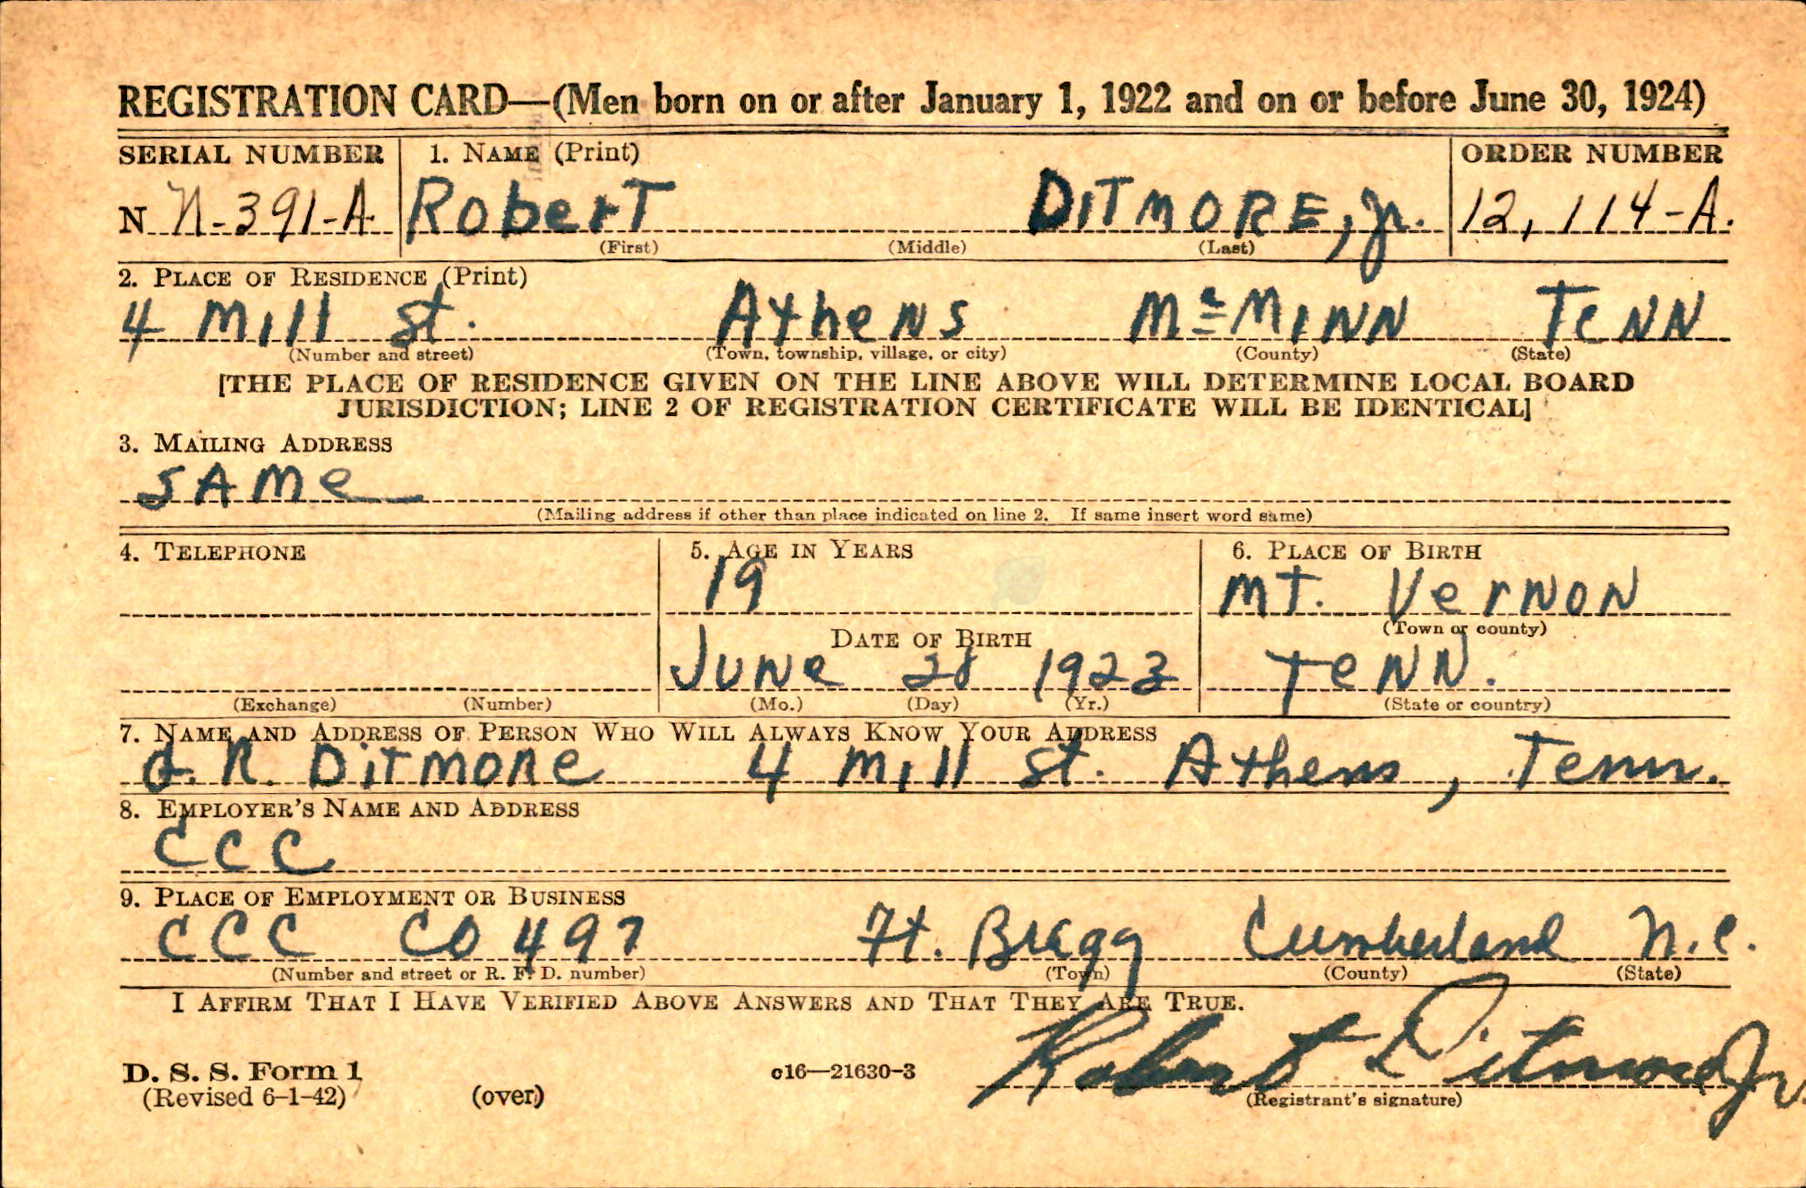 REGISTRATION CARD—(Men born on or after January 1, 1922 and on or before June 30, 1924)
SERIAL NUMBER 1. NAME (Print) ORDER NUMBER
N N-391-A. Robert DITMORE, Jr. 12,114-A.
(First) (Middle) (Last)
2. PLACE OF RESIDENCE (Print)
4 Mill St. Athens McMINN TENN
(Number and street) (Town, township, village, or city) (County) (State)
[THE PLACE OF RESIDENCE GIVEN ON THE LINE ABOVE WILL DETERMINE LOCAL BOARD
JURISDICTION; LINE 2 OF REGISTRATION CERTIFICATE WILL BE IDENTICAL]
3. MAILING ADDRESS
SAMe
(Mailing address if other than place indicated on line 2. If same insert word same)
4. TELEPHONE 5. AGE IN YEARS 6. PLACE OF BIRTH
19 MT. VerNON
(Town or county)
DATE OF BIRTH
JUNe 28 1923 TeNN.
(Exchange) (Number) (Mo.) (Day) (Yr.) (State or country)
7. NAME AND ADDRESS OF PERSON WHO WILL ALWAYS KNOW YOUR ADDRESS
R. DITMORe 4 Mill St. Athens, Tenn.
8. EMPLOYER'S NAME AND ADDRESS
CCC
9. PLACE OF EMPLOYMENT OR BUSINESS
CCC CO 497 Ft. Bragg Cumberland N.C.
(Number and street or R. F. D. number) (Town) (County) (State)
I AFFIRM THAT I HAVE VERIFIED ABOVE ANSWERS AND THAT THEY ARE TRUE.
Robert Ditmore Jr.
D. S. S. Form 1 c16—21630-3
(Revised 6-1-42) (over) (Registrant's signature)